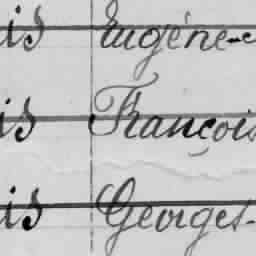 is Eugène-
is François
is Georges-